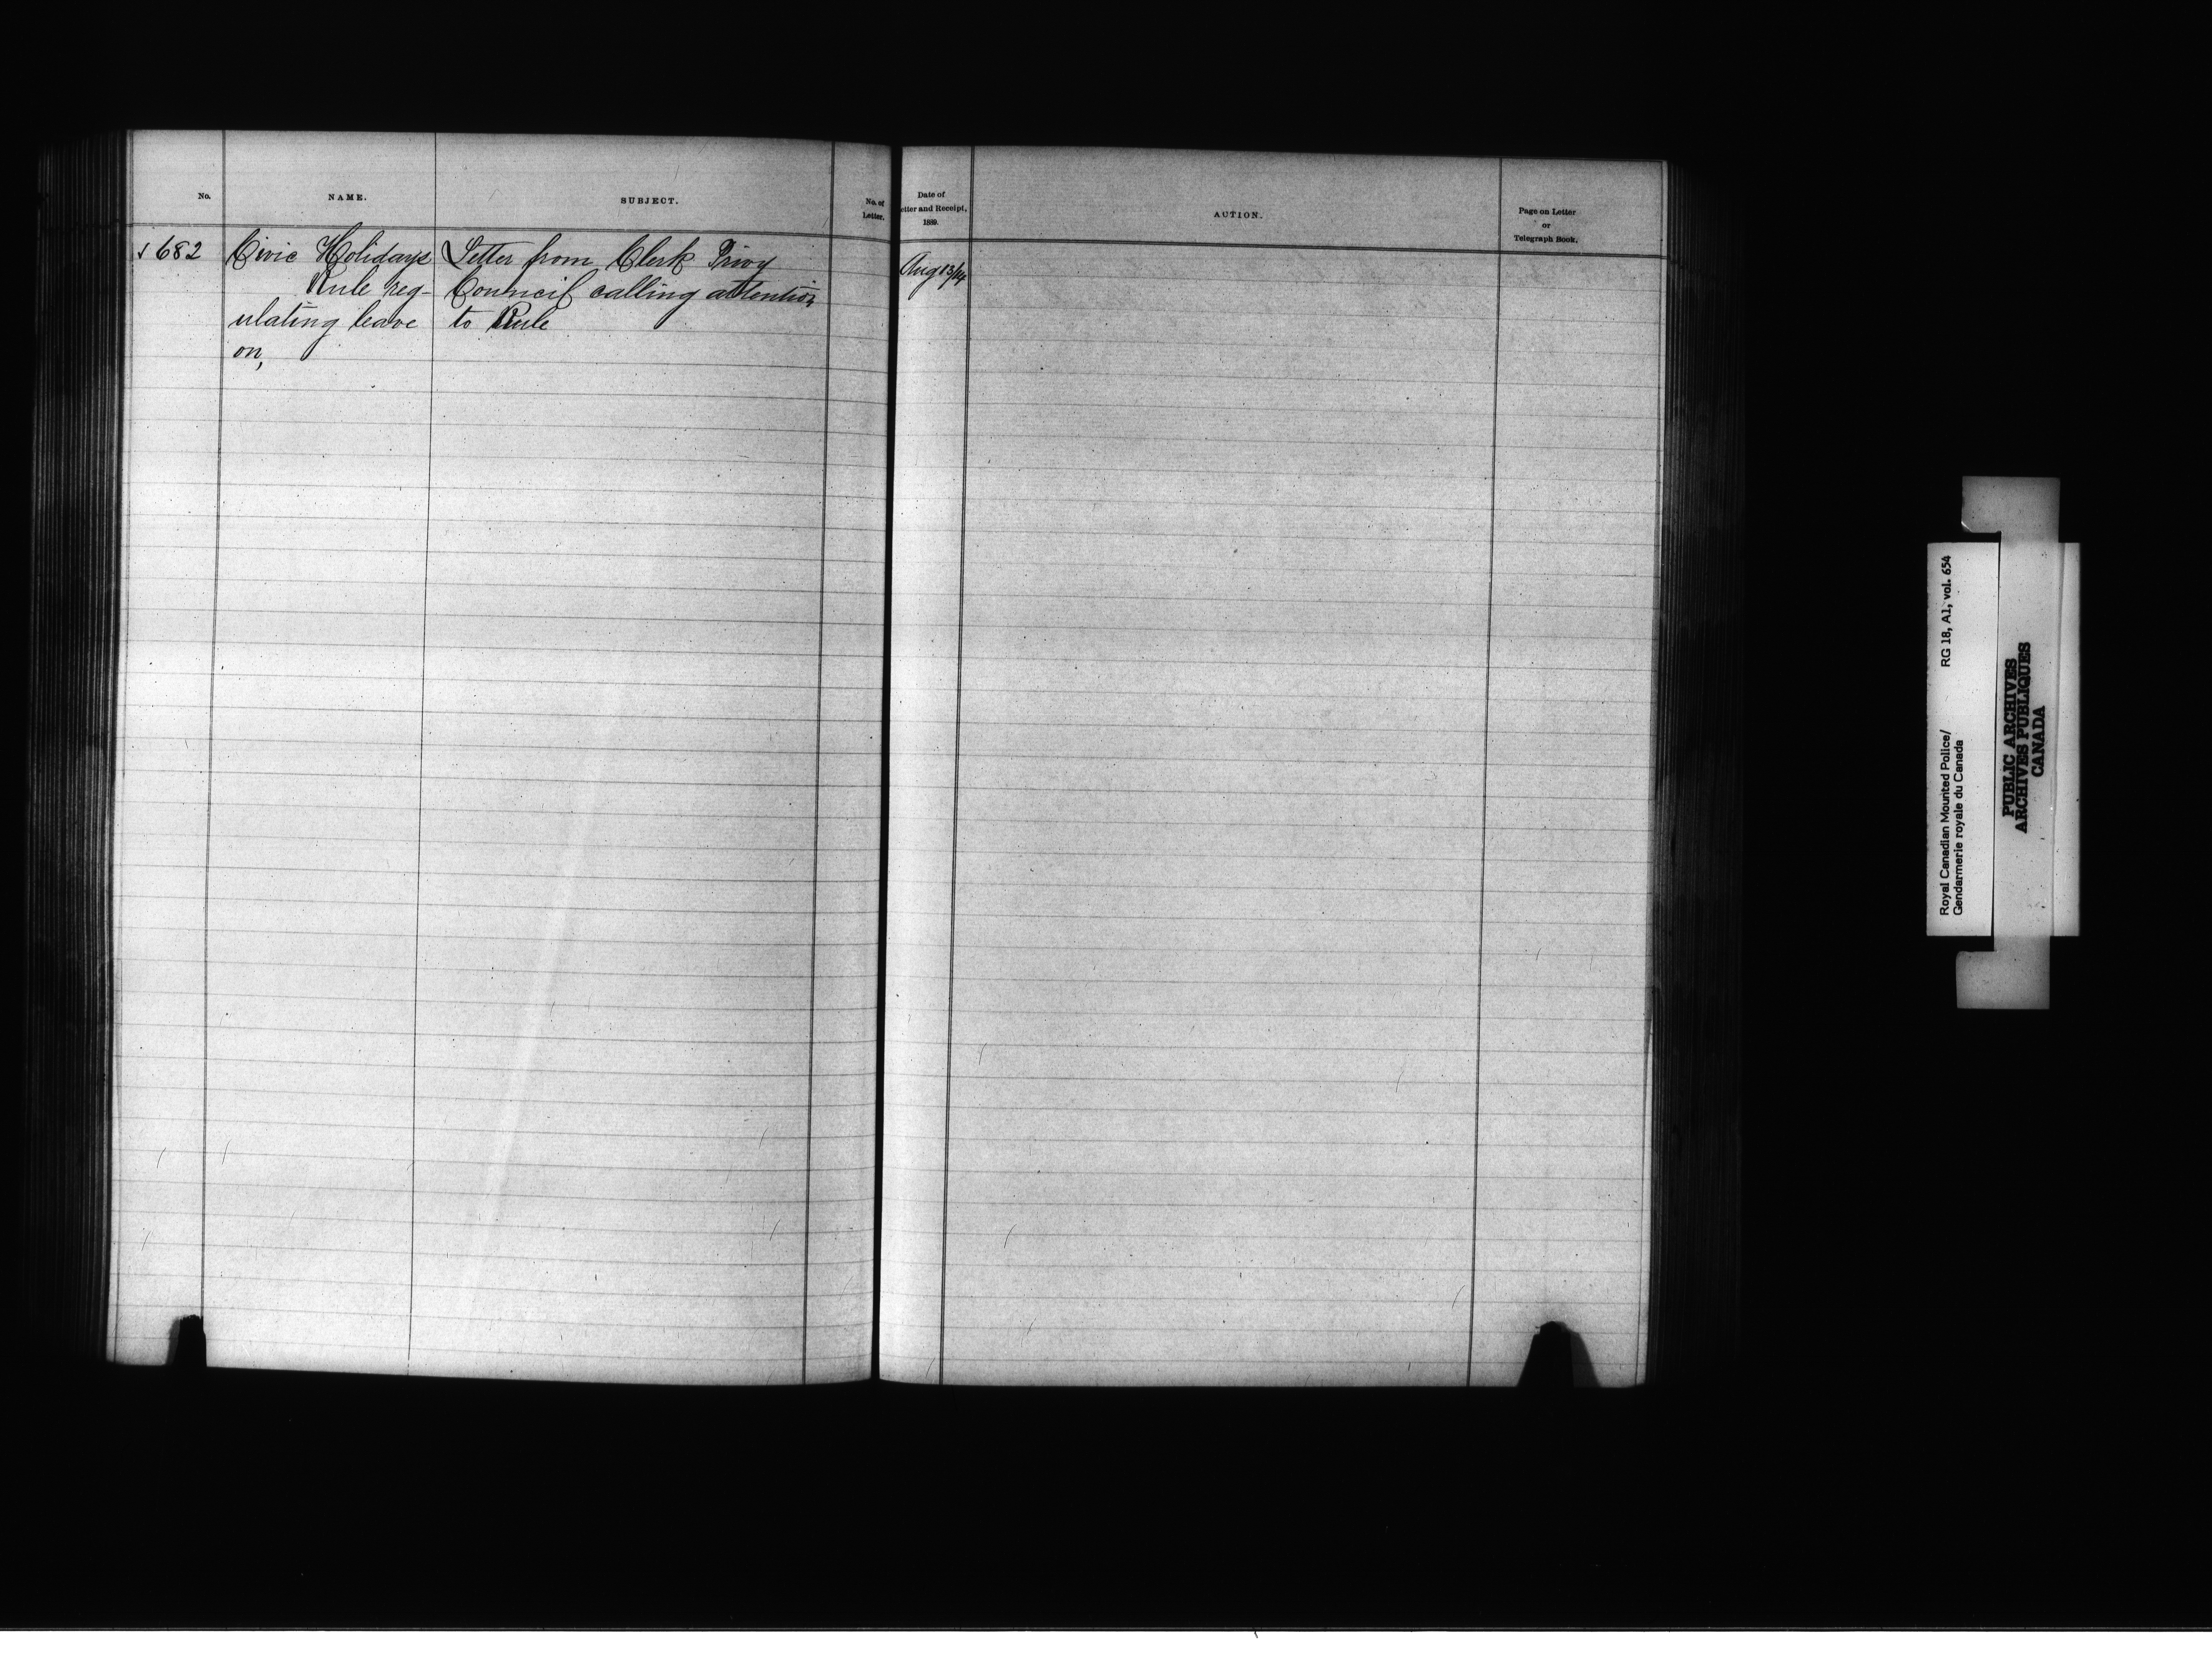 No.
NAME.
SUBJECT.
No. of
Letter.
682
Civic Holidays
Rule reg-
ulating leave
on,
Letter from Clerk Privy
Council calling attention
to Rule
Date of
etter and Receipt,
1889.
ACTION.
Page on Letter
or
Telegraph Book.
Aug 13/14
Royal Canadian Mounted Police/
Gendarmerie royale du Canada
RG 18, A1, vol. 654
PUBLIC ARCHIVES
ARCHIVES PUBLIQUES
CANADA